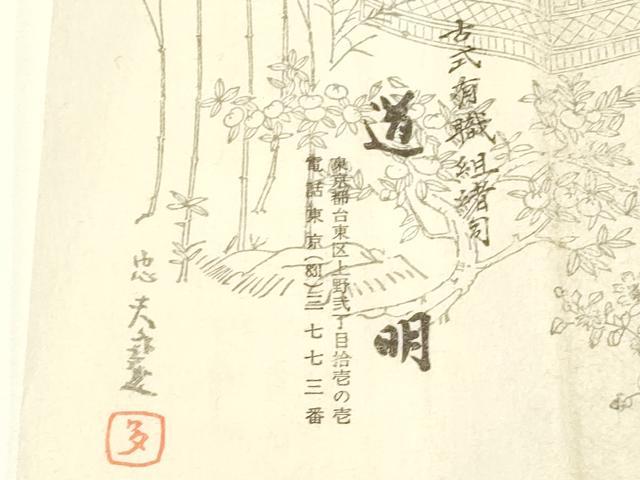 古式有職組緒司
道明
東京都台東区上野弐丁目拾壱の壱
電話東京(831)三七七三番